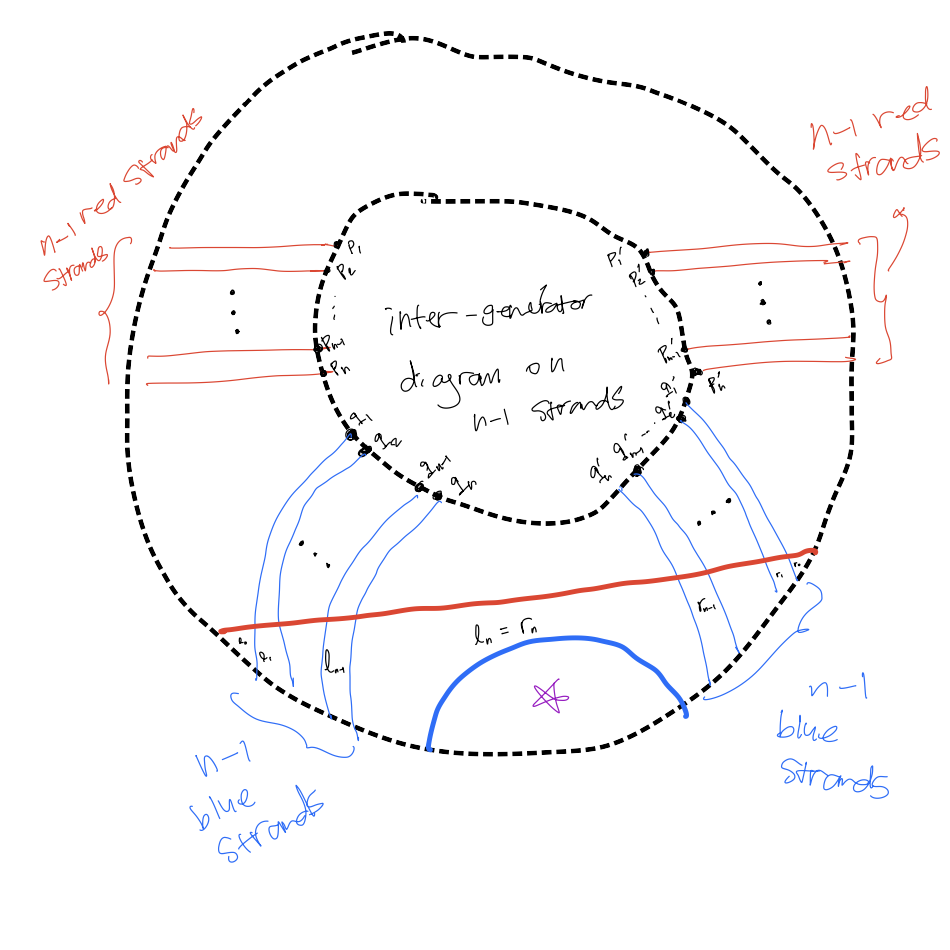 n-1 red strands
strands
n-1 red
strands
P₁
P₂
Pₙ₋₁
Pₙ
P₁'
P₂'
Pₙ₋₁'
Pₙ'
inter-generator
diagram on
n-1 strands
q₁
q₂
qₙ₋₁
qₙ
q₁'
q₂'
qₙ₋₁'
qₙ'
lₙ = rₙ
l₀
l₁
lₙ₋₁
rₙ₋₁
r₁
r₀
n-1
blue
strands
n-1
blue
strands